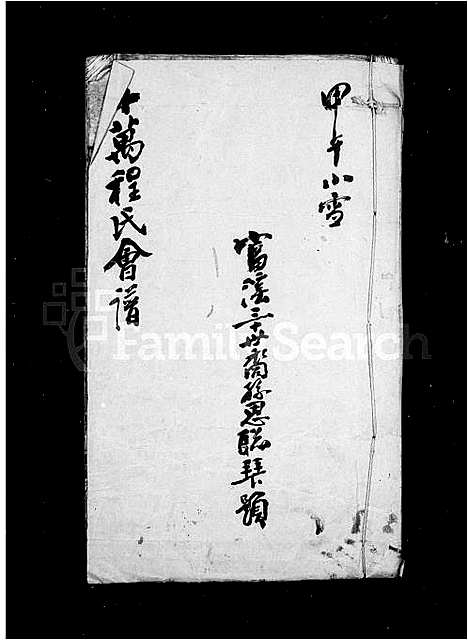 甲午小雪
富溪三十世裔孫思聰拜題
十萬程氏會譜
FamilySearch